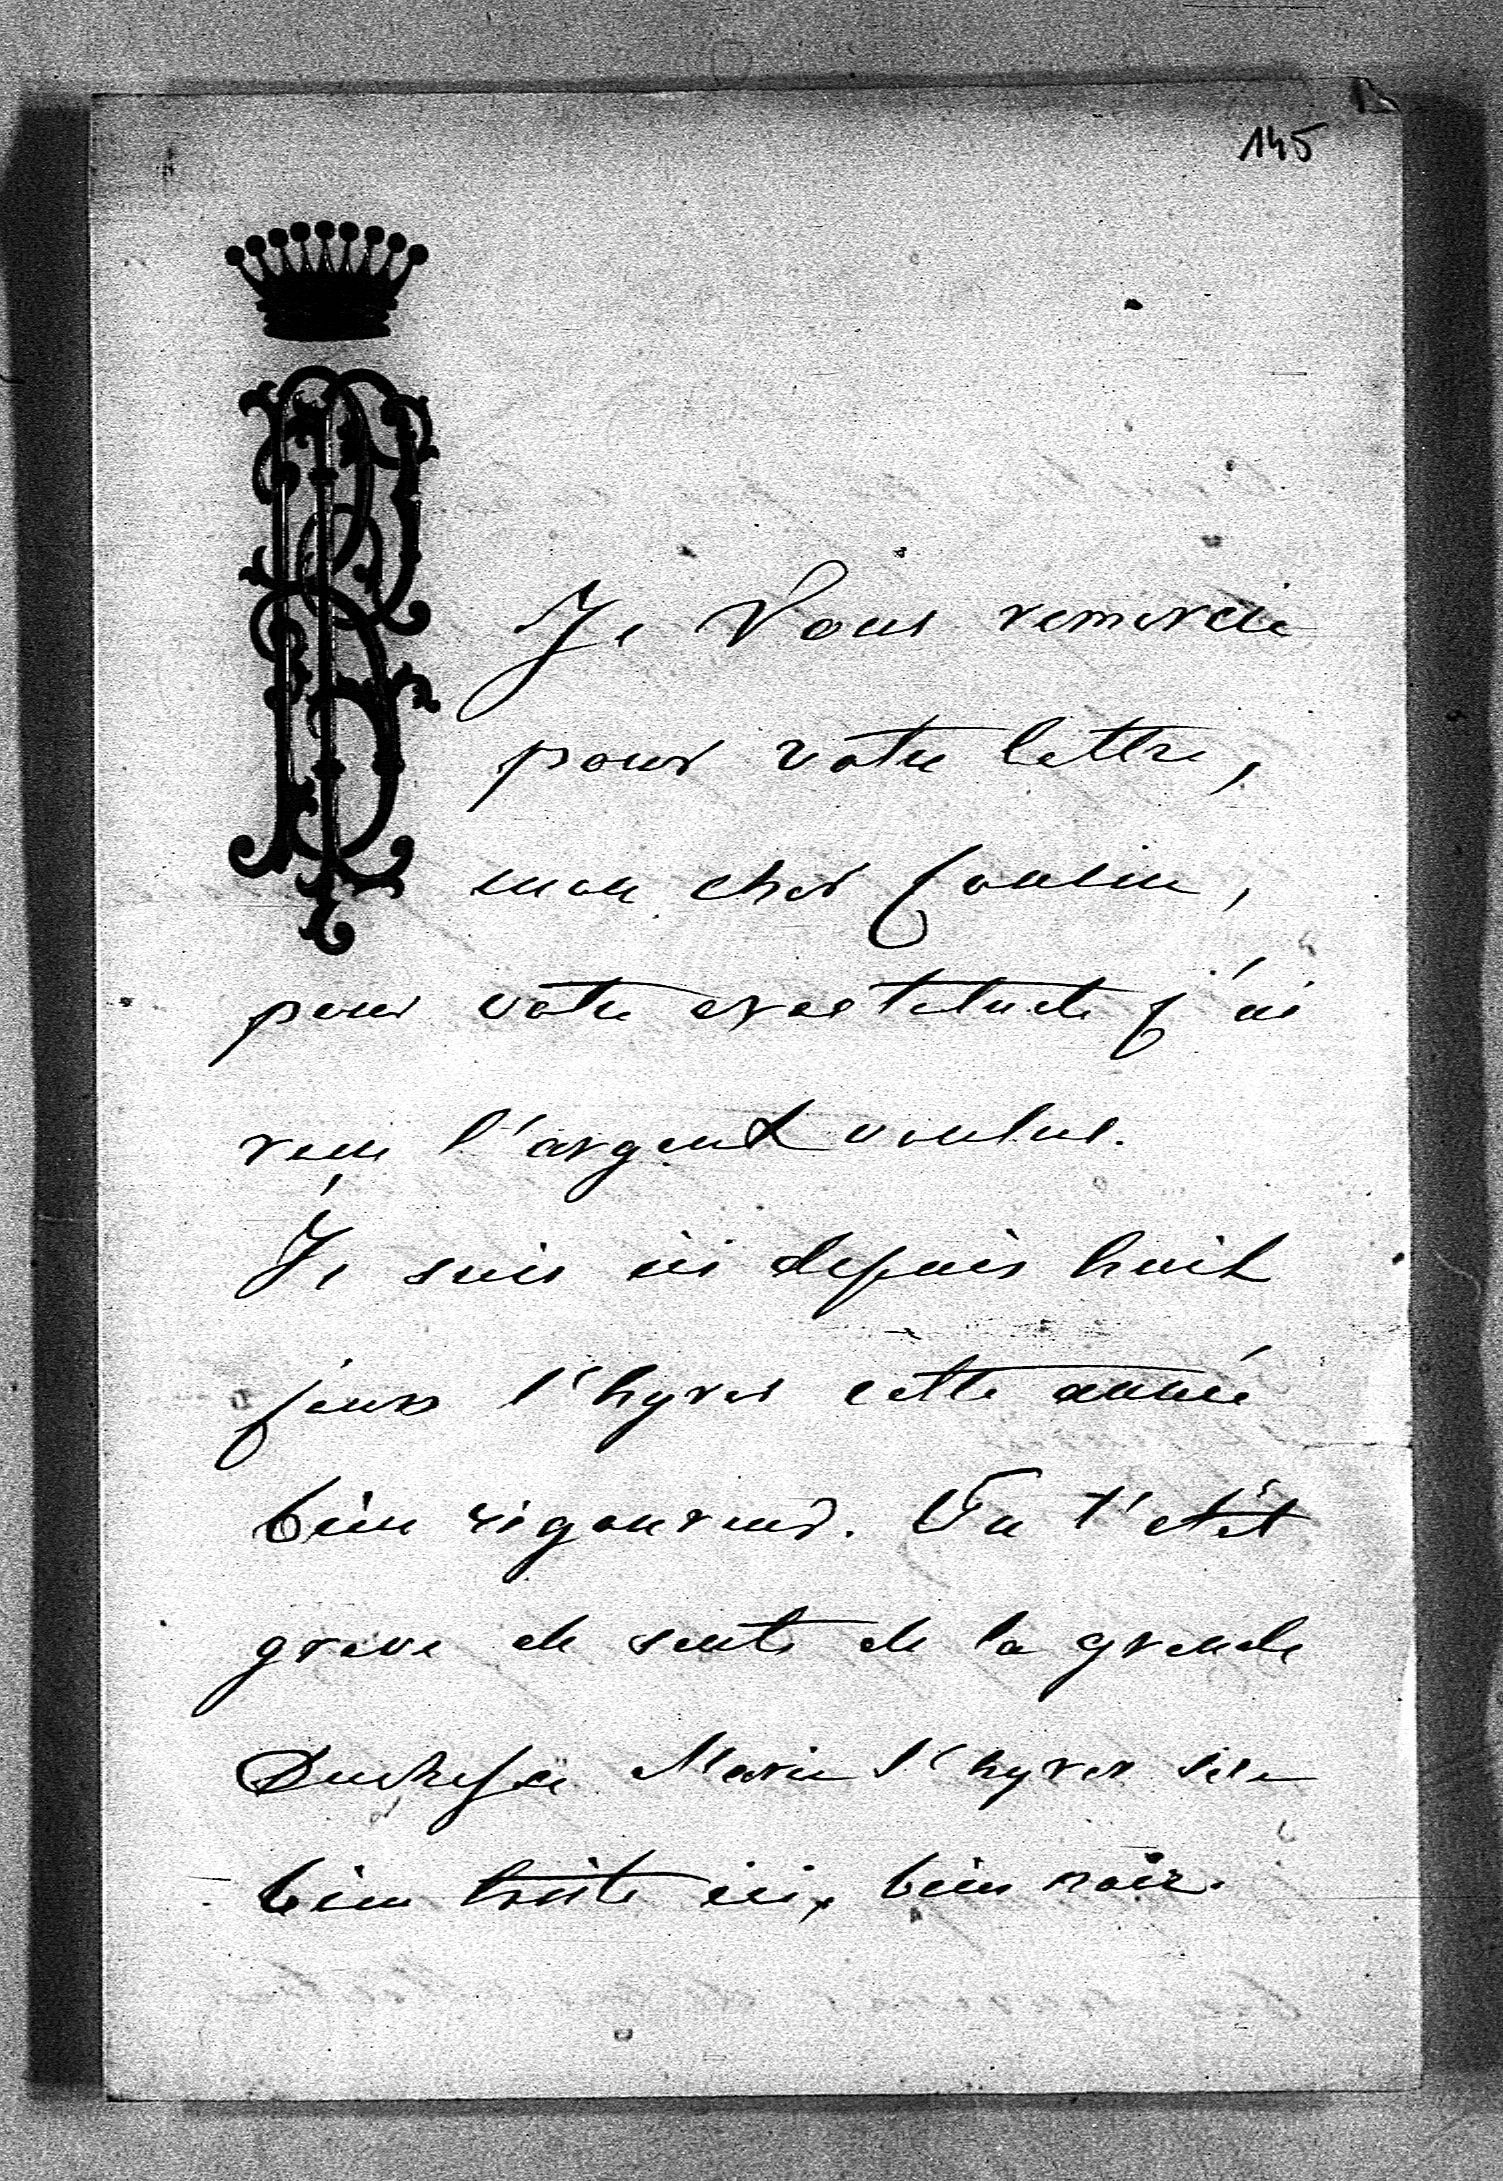 145
Je Vous remercie
pour votre lettre,
mon cher Cousin,
pour votre exactitude j'ai
reçu l'argent voulus.
Je suis ici depuis huit
jours l'hyver cette année
bien rigoureux. Vu l'etat
grave de sante de la grande
Duchesse Marie l'hyver sera
bien triste ici, bien noir.